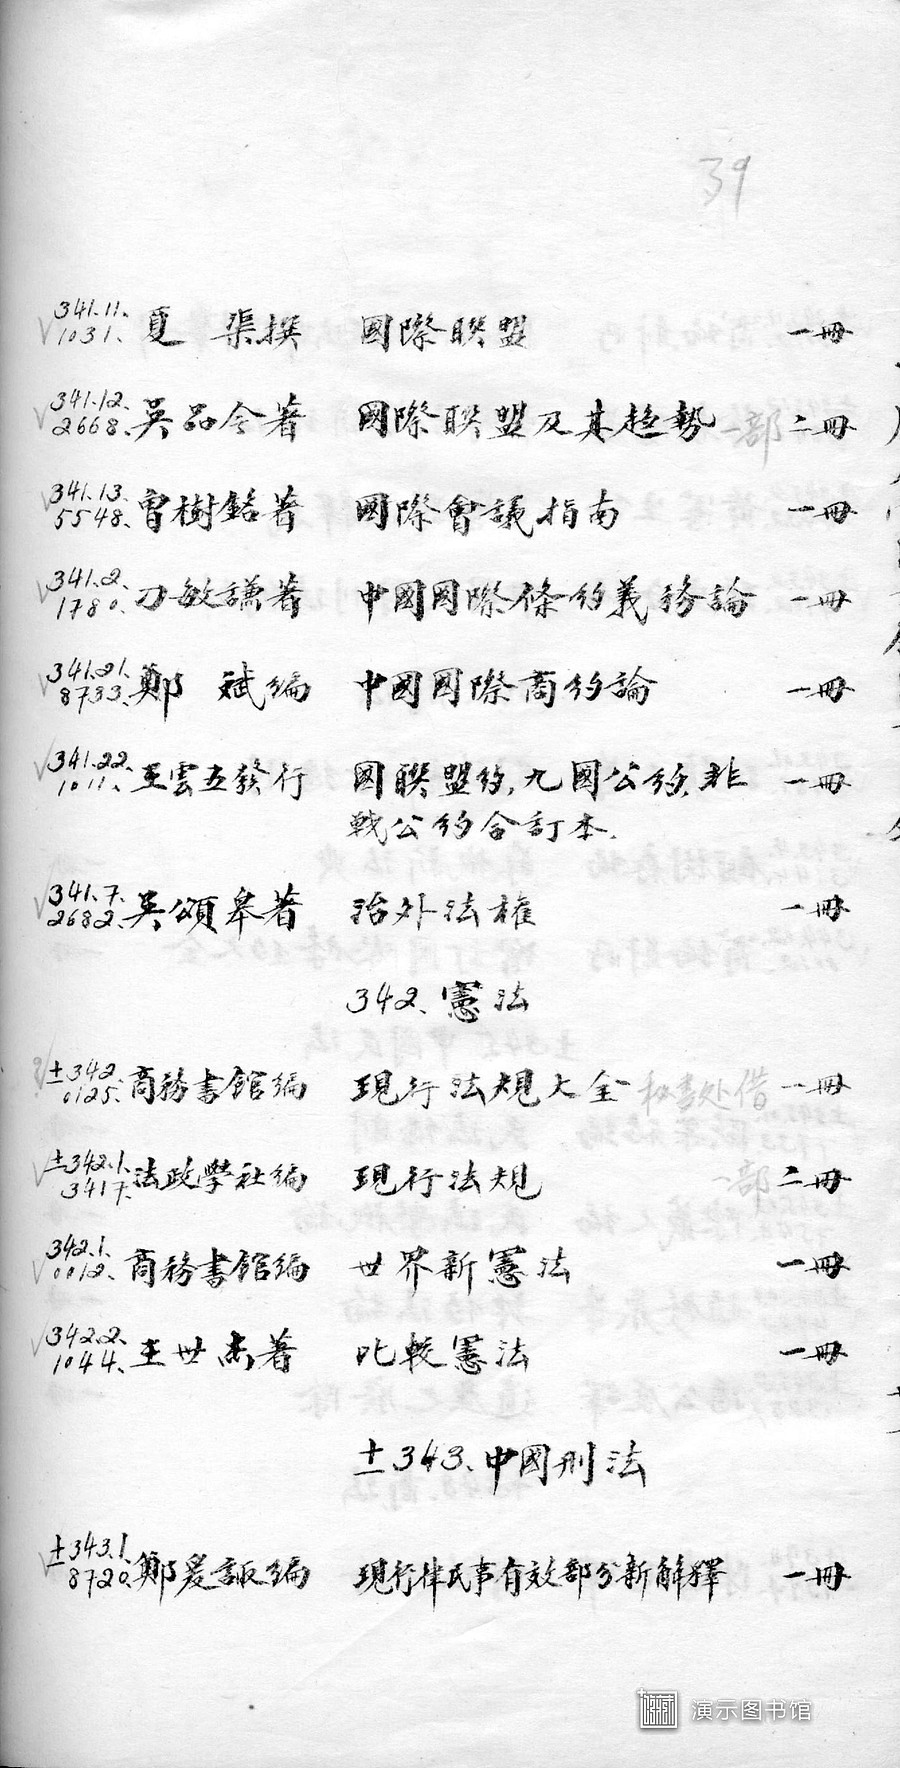 39
341.11.
1031. 夏 渠撰 國際聯盟 一冊
341.12.
2668. 吳品今著 國際聯盟及其趋勢 一部 二冊
341.13.
5548. 曾樹銘著 國際會議指南 一冊
341.2.
1780. 刁敏謙著 中國國際條约義務論 一冊
341.21.
8733. 鄭 斌編 中國國際商约論 一冊
341.22.
1011. 王雲五發行 國聯盟约,九國公约,非
戰公约合訂本.
一冊
341.7.
2682. 吳頌皋著 治外法權 一冊
342.憲法
±342.
0125. 商務書館編 現行法規大全 秘書处借 一冊
±342.1.
3417. 法政學社編 現行法規 一部 二冊
342.1.
0012. 商務書館編 世界新憲法 一冊
342.2.
1044. 王世杰著 比較憲法 一冊
±343.中國刑法
±343.1.
8720. 鄭爰諏編 現行律民事有效部分新解釋 一冊
演示图书馆